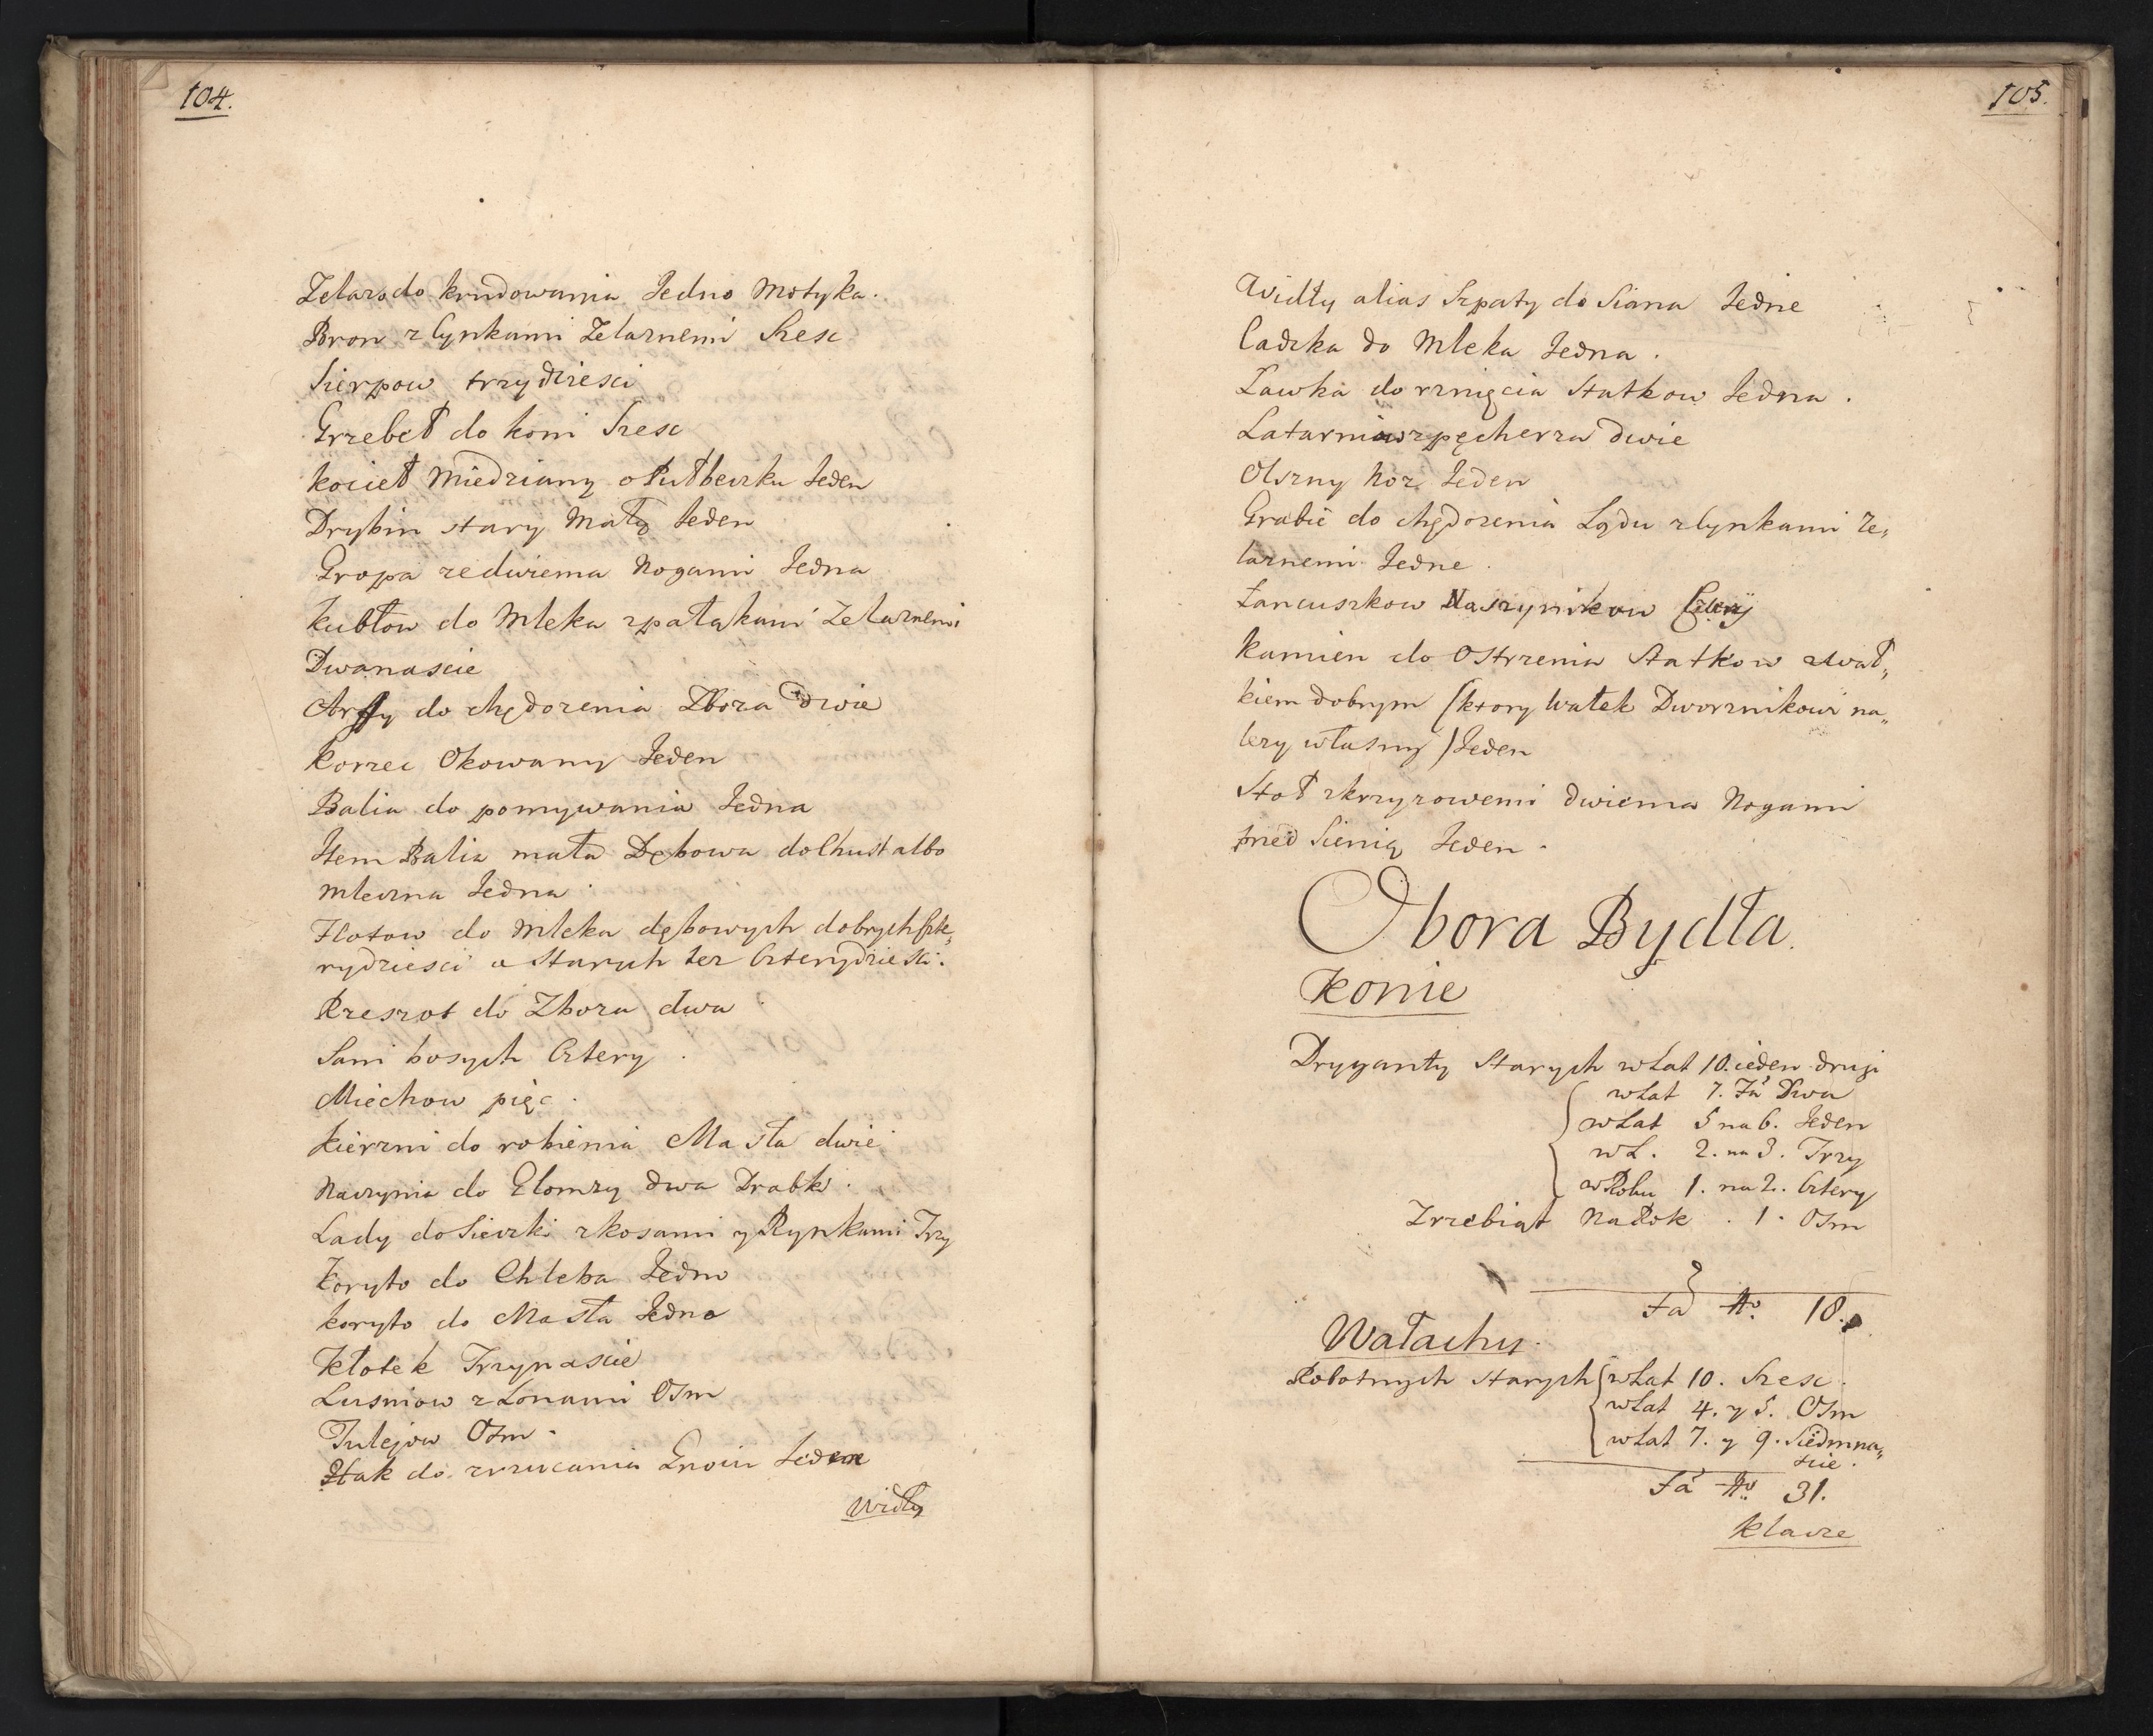 104.
Zelazo do krudowania Jedno Motyka.
Bron z lynkami Zelaznemi Szesc
Sierpow trzydziesci
Grzebeł do koni Szesc
kocieł Miedziany o Pułbeczku Jeden
Drybin stary Mały Jeden
Gropa ze dwiema Nogami Jedna
kubłow do Mleka z pałąkami Zelaznemi
Dwanascie
Arffy do chędozenia Zboza dwie
korzec Okowany Jeden
Balia do pomywania Jedna
Item Balia mała Dębowa do Chust albo
mleczna Jedna
Flotow do Mleka dębowych dobrych Czte„
rydziesci a Starych tez Czterydziesci.
Rzeszot do Zboza dwa
Sani bosych Cztery
Miechow pięc.
kierzni do robienia Masła dwie
Naczynia do Glomzy dwa Drabki.
Lady do Sieczki z kosami y Rynkami Trzy
koryto do Chleba Jedno
koryto do Masła Jedno
Kłotek Trzynascie
Lusniow z Lonami Osm
Tulejow Osm.
Hak do zrzucania Gnoiu Jeden
Widły
105.
Widły alias Szpaty do Siana Jedne
Cadzka do Mleka Jedna.
Lawka do rznięcia Statkow Jedna.
Latarniow z pęcherza dwie
Olszny Noz Jeden
Grabie do chędozenia Lądu z lynkami Ze„
laznemi Jedne.
Łancuszkow Naszynikow Cztery
kamien do Ostrzenia Statkow z wał„
kiem dobrym (ktory wałek Dworznikowi na„
lezy własny) Jeden
Stoł z krzyzowemi dwiema Nogami
przed Sienią Jeden.
Obora Bydła.
Konie
Dryganty Starych w Lat 10. ieden drugi
w Lat 7. Fa Dwa
w Lat 5 na 6. Jeden
w L. 2. na 3. Trzy
w Roku 1. na 2. Cztery
Zrzebiąt Na Rok. 1. Osm
Fa No. 18.
Wałachy.
Robotnych starych w Lat 10. Szesc.
w Lat 4. y 5. Osm
w Lat 7. y 9. Siedmna„
scie.
Fa No 31.
klacze